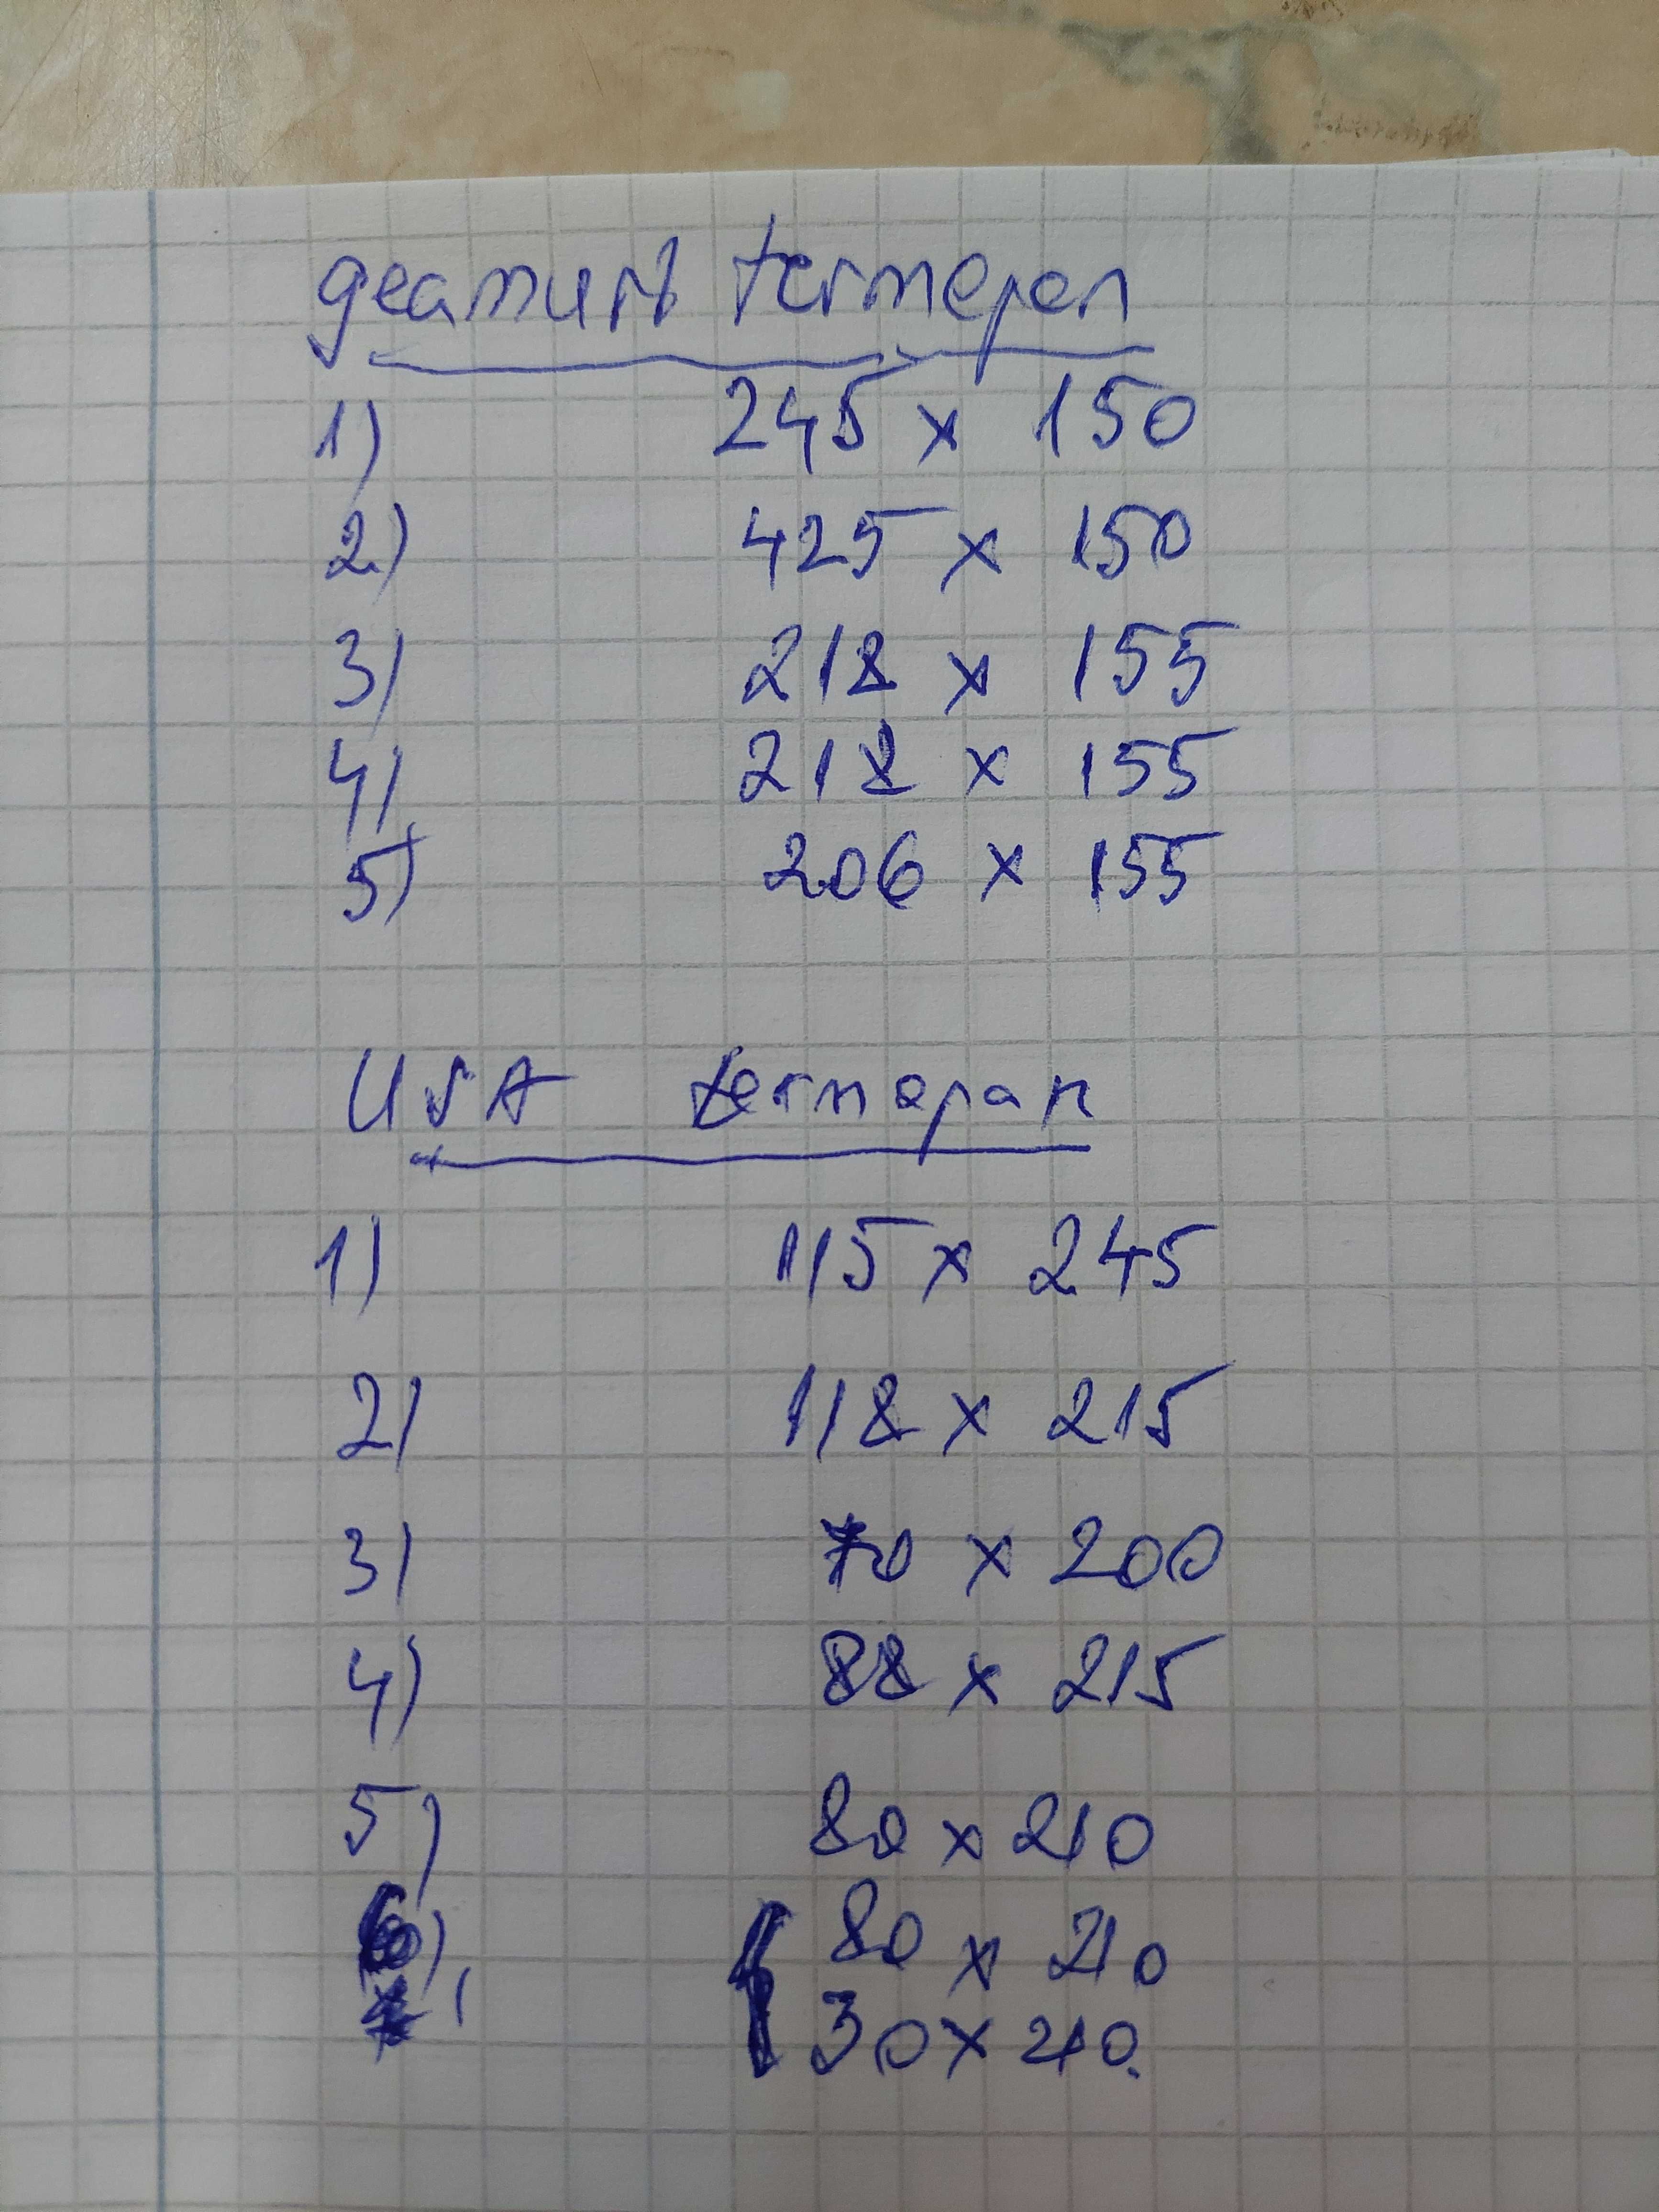 geamuri termopan
1) 245 x 150
2) 425 x 150
3) 218 x 155
4) 218 x 155
5) 206 x 155
USA termopan
1) 115 x 245
2) 118 x 215
3) 70 x 200
4) 88 x 215
5) 80 x 210
6) 80 x 210
30 x 210